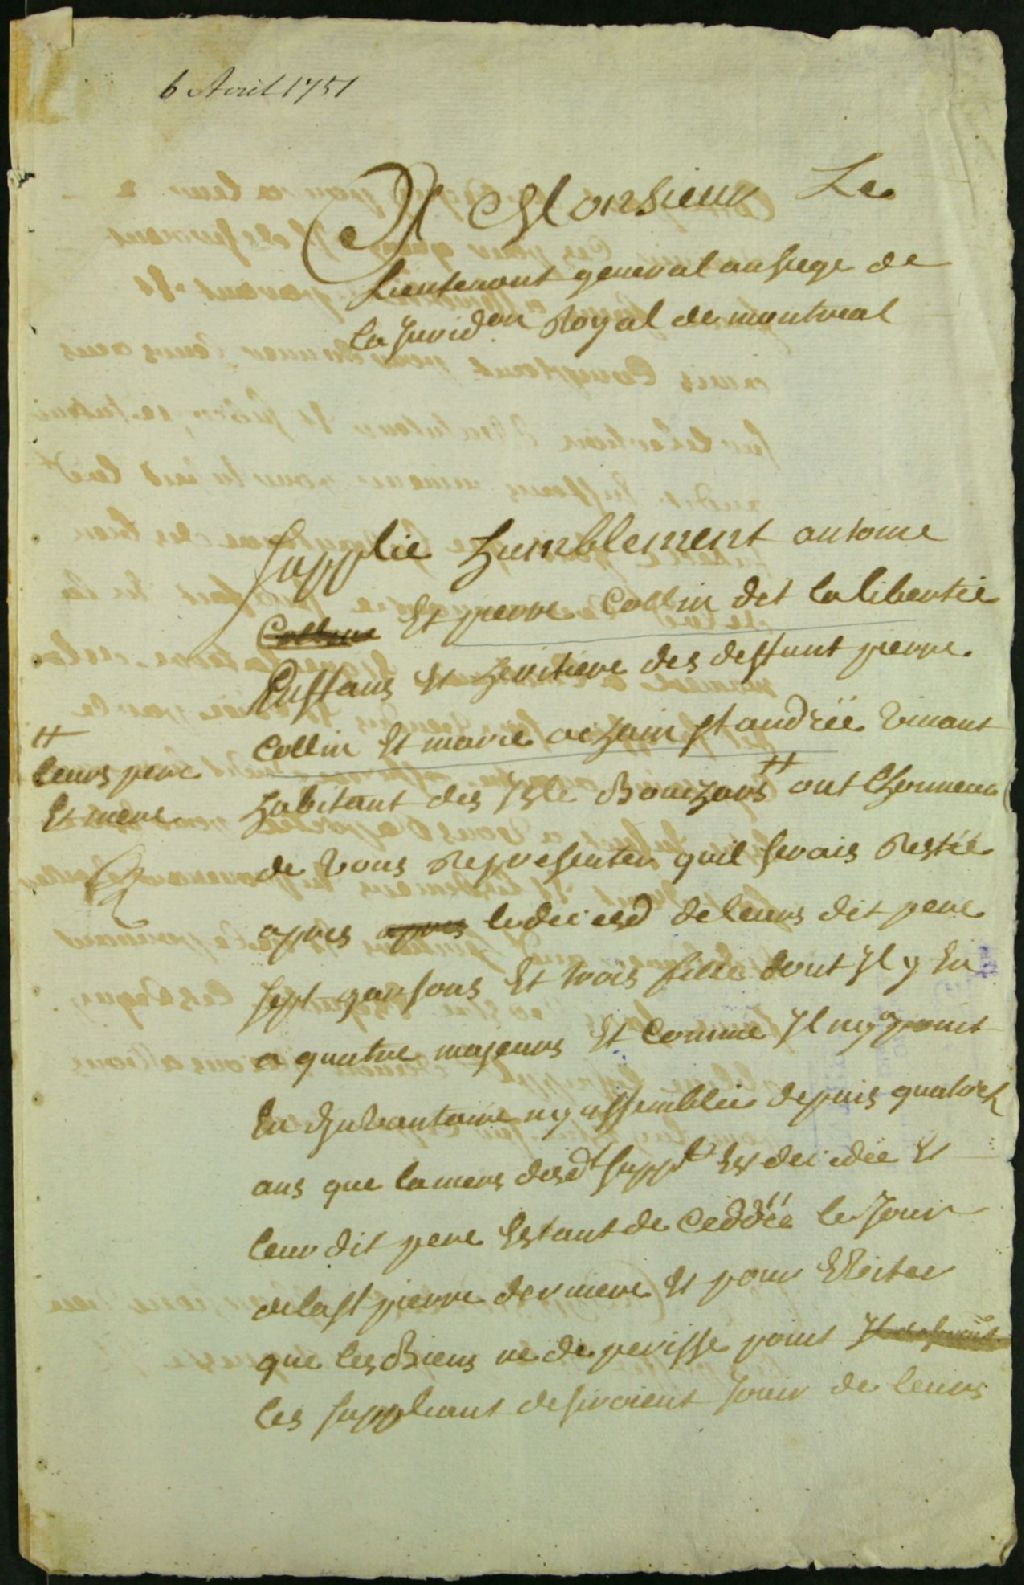 6 Avril 1751
A Monsieur Le
Lieutenant general au siege de
la Jurid.on Royal de montreal
Supplie humblement antoine
Et pierre Collin dit la libertée
Enffans Et heritiere des deffunt pierre
Collin Et marie st andrée vivant
habitant des Isle Bouchars # ont lhonneur
#
leurs pere
Et mere
de vous Representer quil serais Restée
apres apres le deceed de leurs dit pere
sept garsons Et trois fille dont Il y En
a quatre majeurs Et Comme Il ny a point
Eu dhinvantaire ny assemblée depuis quatorze
ans que la mere desd.t supp.t Est decidée Et
leur dit pere Estant de Ceddée le Jour
de la st pierre derniere Et pour Eviter
que les Biens ne de perisse point
les suppliant desiroient Jouir de leurs